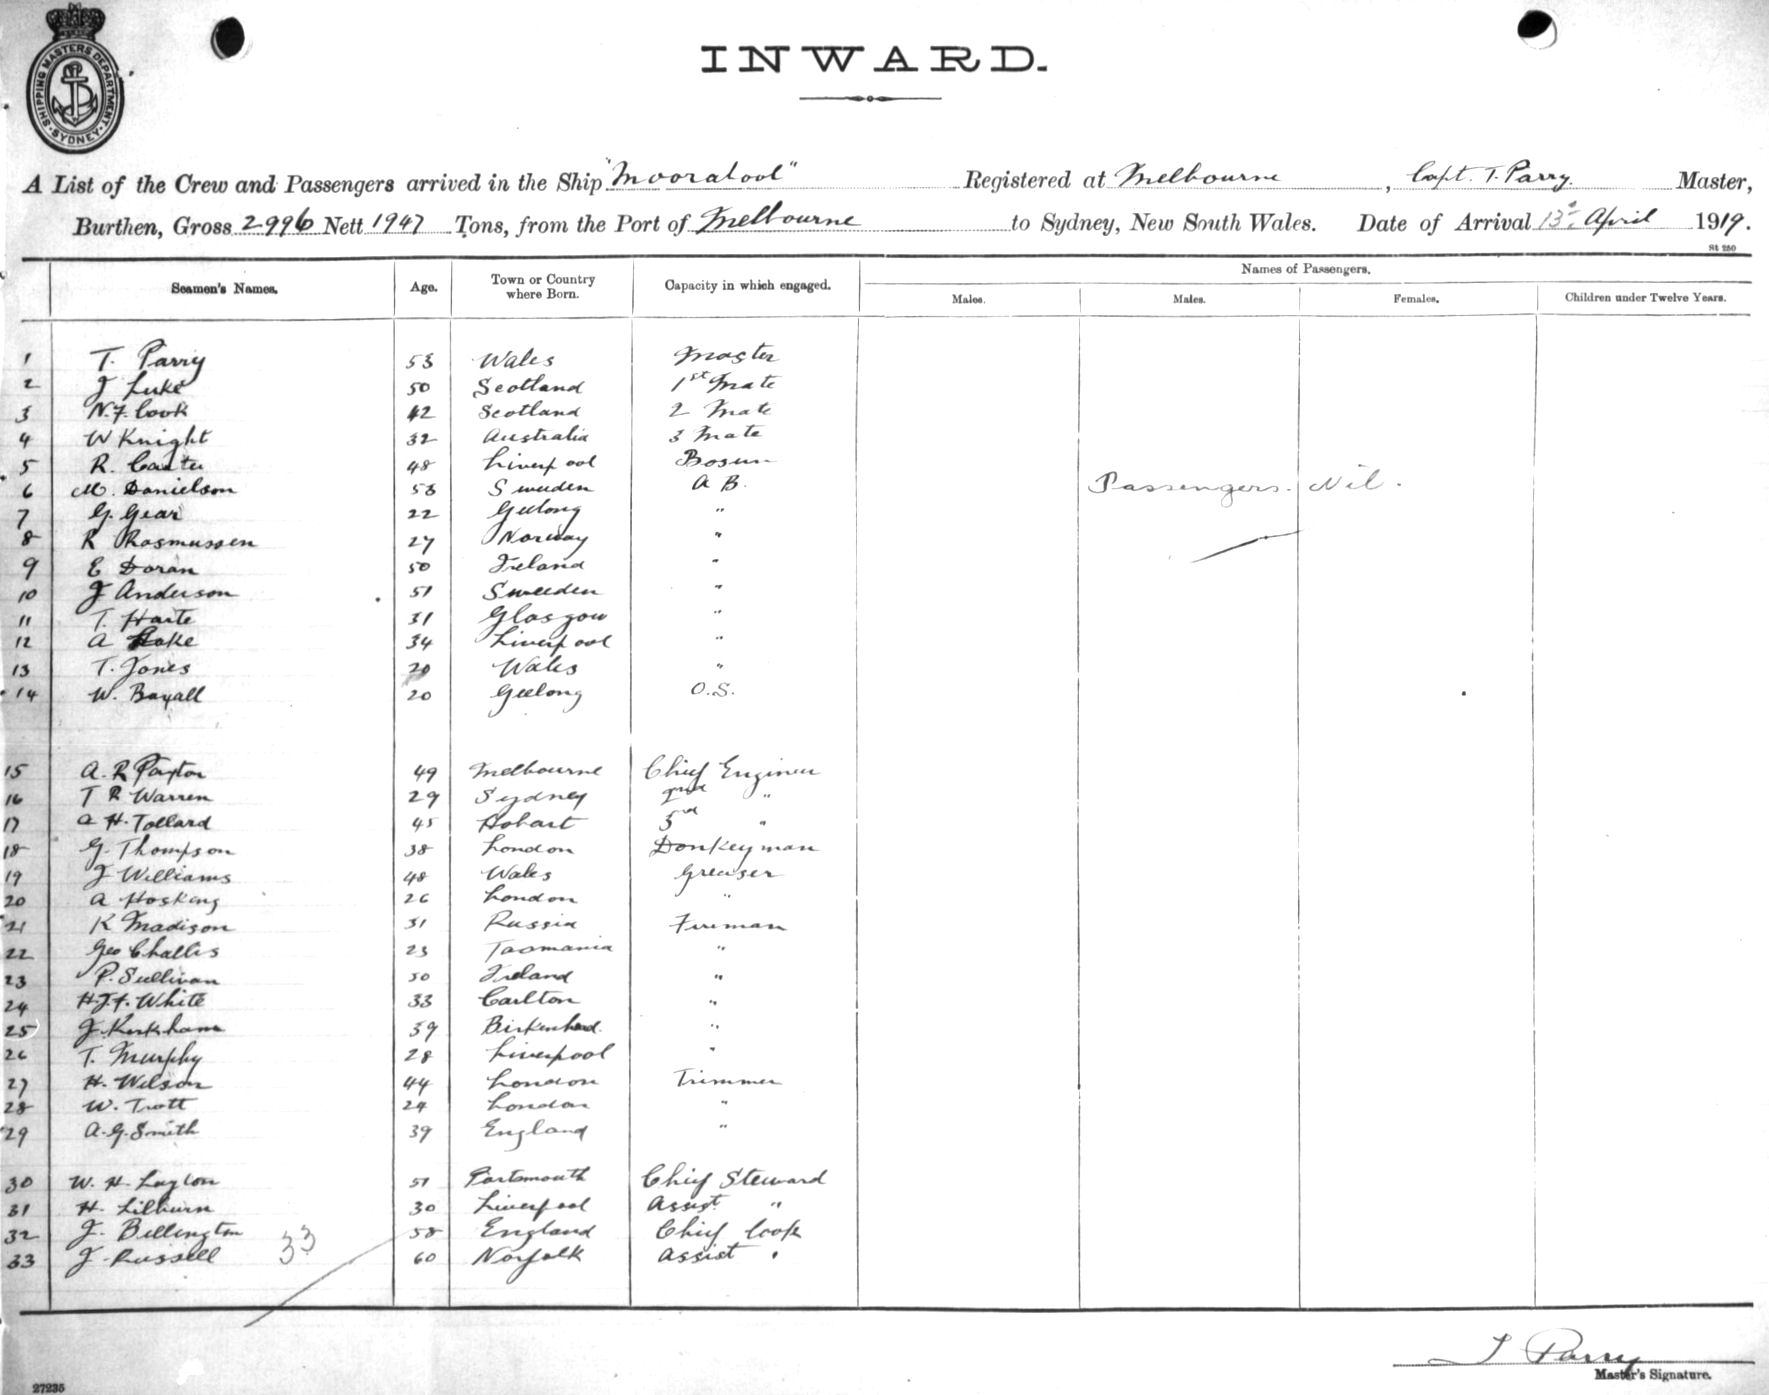 SHIPPING MASTERS DEPARTMENT · SYDNEY ·
INWARD.
A List of the Crew and Passengers arrived in the Ship "Moorabool" Registered at Melbourne, Capt. T. Parry. Master,
Burthen, Gross 2996 Nett 1947 Tons, from the Port of Melbourne to Sydney, New South Wales. Date of Arrival 13th April 1919.
St 250
Seamen's Names. Age. Town or Country where Born. Capacity in which engaged. Names of Passengers.
Males. Males. Females. Children under Twelve Years.
1 T. Parry 53 Wales Master
2 J Luke 50 Scotland 1st Mate
3 N.F. Cook 42 Scotland 2 Mate
4 W Knight 32 Australia 3 Mate
5 R. Carter 48 Liverpool Bosun
6 M. Danielson 53 Sweeden A B. Passengers. Nil.
7 G. Gear 22 Geelong "
8 R Rasmussen 27 Norway "
9 E Doran 50 Ireland "
10 J Anderson 51 Sweeden "
11 T. Harte 31 Glasgow "
12 A Lake 34 Liverpool "
13 T. Jones 20 Wales "
14 W. Boyall 20 Geelong O.S.
15 A. R Paxton 49 Melbourne Chief Engineer
16 T R Warren 29 Sydney 2nd "
17 A H. Tollard 45 Hobart 3rd "
18 G. Thompson 38 London Donkeyman
19 J Williams 48 Wales Greaser
20 A Hosking 26 London "
21 K Madison 31 Russia Fireman
22 Geo Challis 23 Tasmania "
23 P. Sullivan 50 Ireland "
24 H.J.F. White 33 Carlton "
25 J. Kirkham 39 Birkenhead. "
26 T. Murphy 28 Liverpool "
27 H. Wilson 44 London Trimmer
28 W. Trott 24 London "
29 A. G. Smith 39 England "
30 W. H. Layton 51 Portsmouth Chief Steward
31 H. Lilburn 30 Liverpool Assist "
32 J. Billington 58 England Chief Cook
33 J Russell 33 60 Norfolk Assist "
T Parry
Master's Signature.
27235